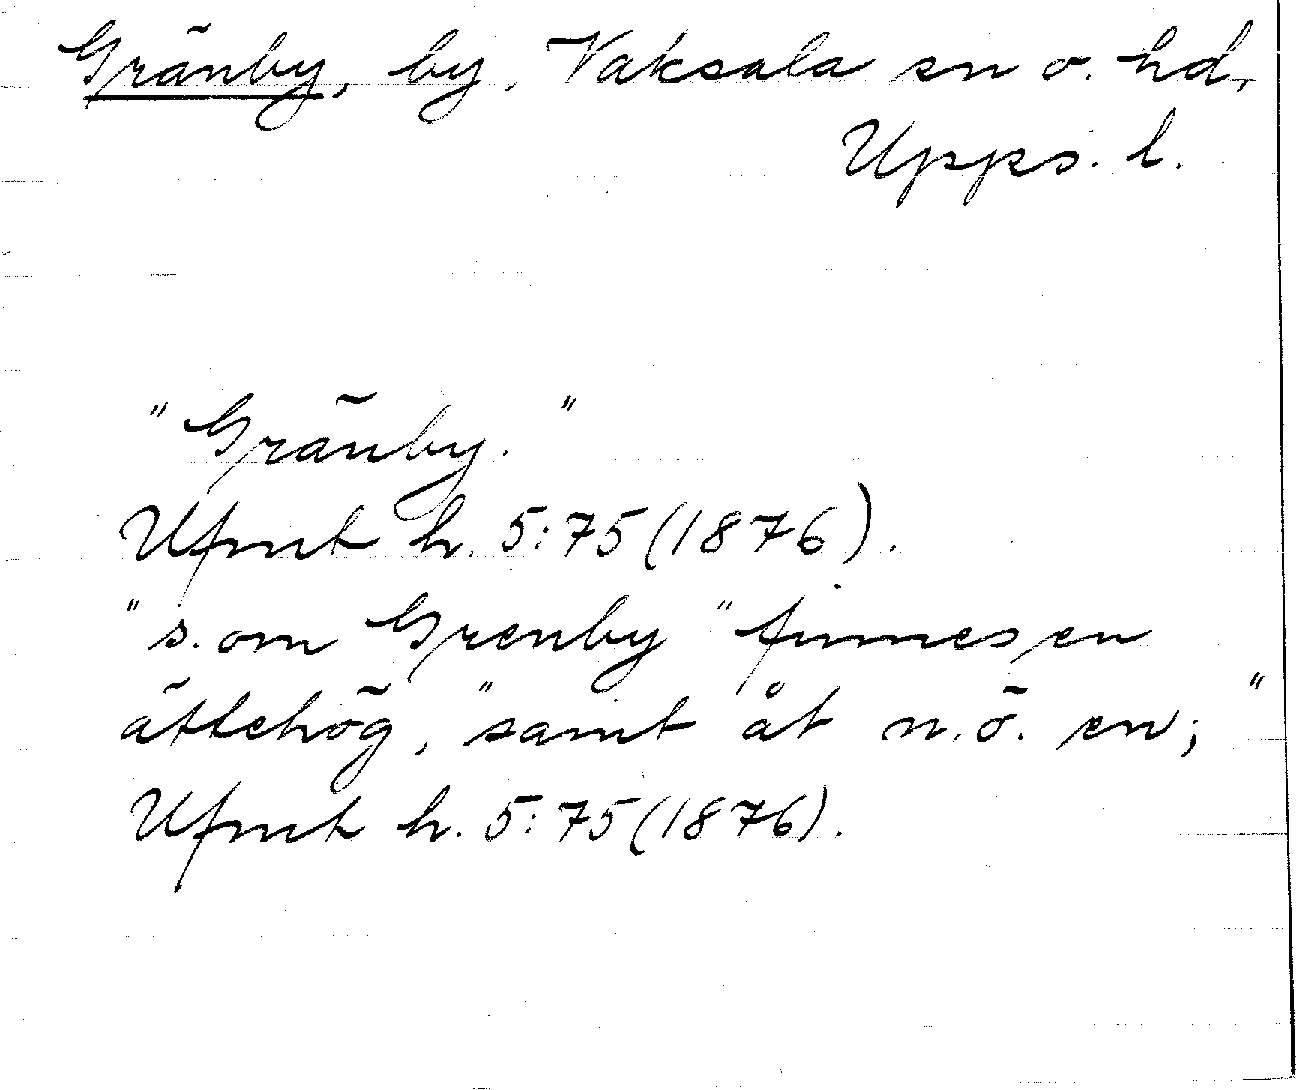 Gränby, by, Vaksala sn o. hd,
Upps. l.
"Gränby."
Ufmt h. 5:75 (1876).
"s. om Grenby" finnes en
ättehög, "samt åt n.ö. en;"
Ufmt h. 5:75 (1876).